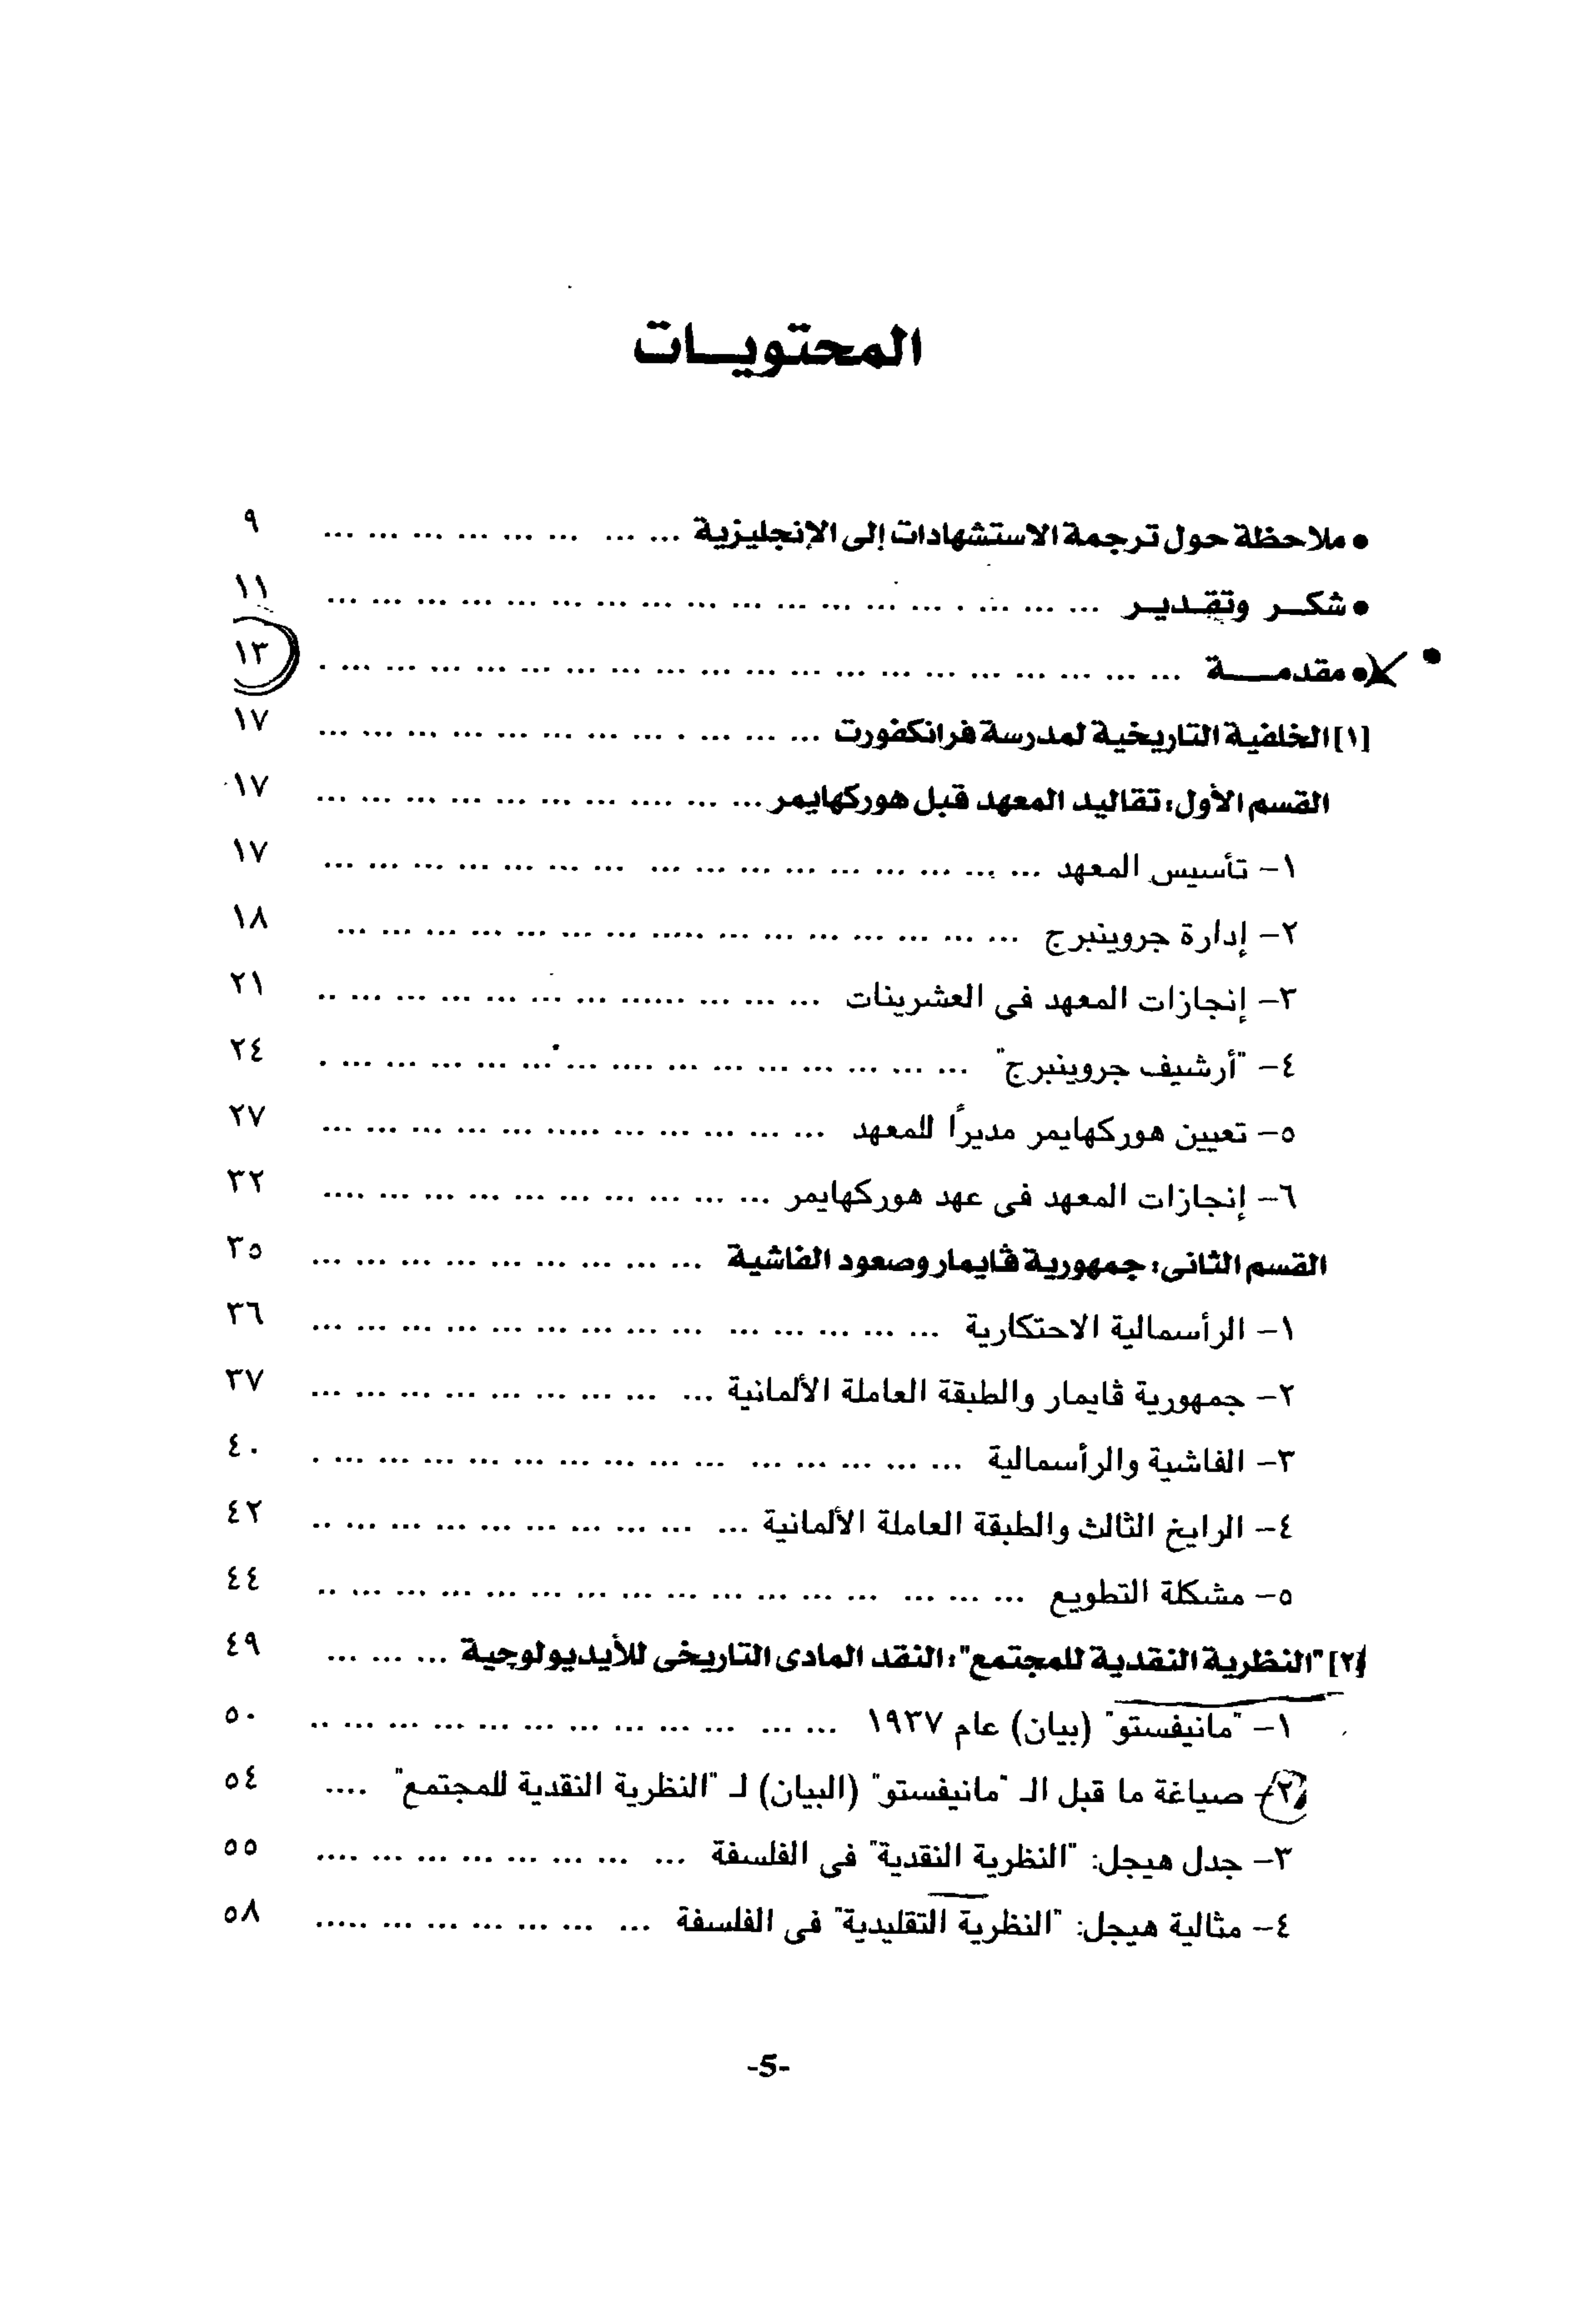 المحتويـــات
• ملاحظة حول ترجمة الاستشهادات إلى الإنجليزية ... ... ... ... ... ... ... ... ٩
• شكــر وتقـديـر ... ... ... ... ... ... ... ... ... ... ... ... ... ... ... ... ١١
• مقدمــــة ... ... ... ... ... ... ... ... ... ... ... ... ... ... ... ... ... ١٣
[١] الخلفية التاريخية لمدرسة فرانكفورت ... ... ... ... ... ... ... ... ... ... ١٧
القسم الأول: تقاليد المعهد قبل هوركهايمر ... ... ... ... ... ... ... ... ... ١٧
١– تأسيس المعهد ... ... ... ... ... ... ... ... ... ... ... ... ... ... ... ١٧
٢– إدارة جروينبرج ... ... ... ... ... ... ... ... ... ... ... ... ... ... ... ١٨
٣– إنجازات المعهد فى العشرينات ... ... ... ... ... ... ... ... ... ... .. ٢١
٤– "أرشيف جروينبرج" ... ... ... ... ... ... ... ... ... ... ... ... ... . ٢٤
٥– تعيين هوركهايمر مديرًا للمعهد ... ... ... ... ... ... ... ... ... ... ... ٢٧
٦– إنجازات المعهد فى عهد هوركهايمر ... ... ... ... ... ... ... ... ... .... ٣٢
القسم الثانى: جمهورية ڤايمار وصعود الفاشية ... ... ... ... ... ... ... ... ... ٣٥
١– الرأسمالية الاحتكارية ... ... ... ... ... ... ... ... ... ... ... ... ... ... ٣٦
٢– جمهورية ڤايمار والطبقة العاملة الألمانية ... ... ... ... ... ... ... ... ... ٣٧
٣– الفاشية والرأسمالية ... ... ... ... ... ... ... ... ... ... ... ... ... ... . ٤٠
٤– الرايخ الثالث والطبقة العاملة الألمانية ... ... ... ... ... ... ... ... ... .. ٤٢
٥– مشكلة التطويع ... ... ... ... ... ... ... ... ... ... ... ... ... ... ... .. ٤٤
[٢] "النظرية النقدية للمجتمع": النقد المادى التاريخى للأيديولوجية ... ... ... ٤٩
١– "مانيفستو" (بيان) عام ١٩٣٧ ... ... ... ... ... ... ... ... ... ... ... .. ٥٠
٢– صياغة ما قبل الـ "مانيفستو" (البيان) لـ "النظرية النقدية للمجتمع" .... ٥٤
٣– جدل هيجل: "النظرية النقدية" فى الفلسفة ... ... ... ... ... ... ... .... ٥٥
٤– مثالية هيجل: "النظرية التقليدية" فى الفلسفة ... ... ... ... ... ... ..... ٥٨
-5-